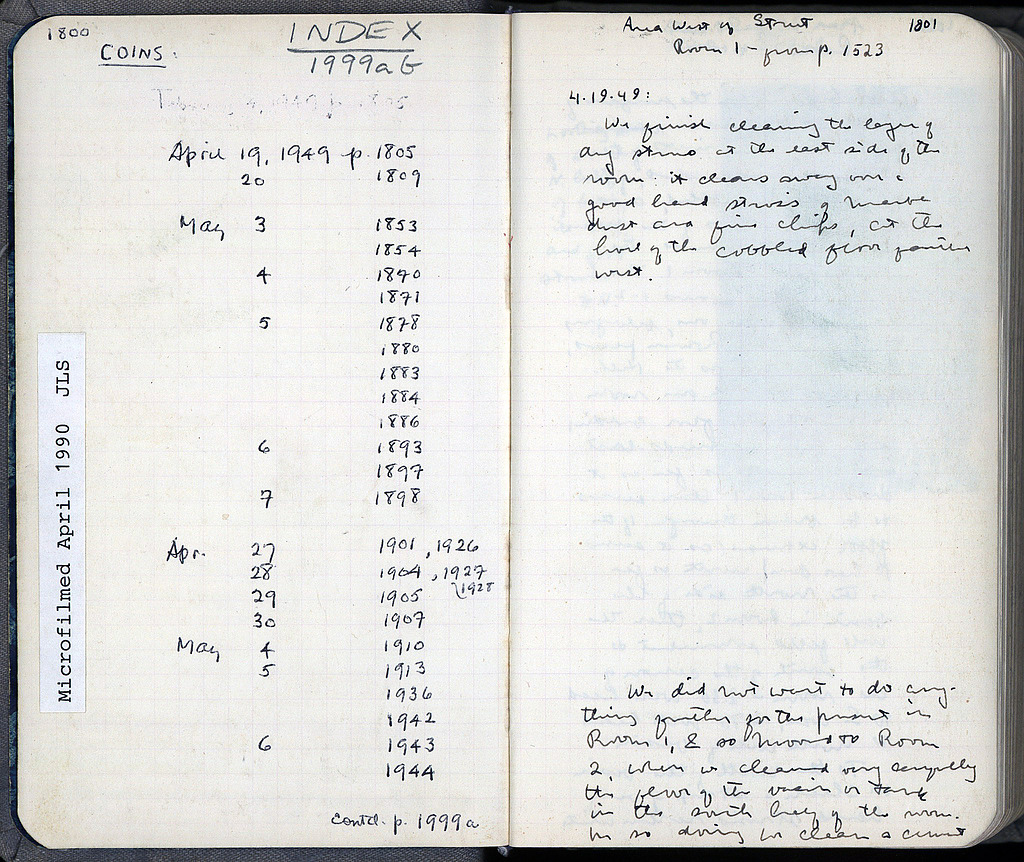 1800
COINS.
INDEX
1999a G
April 19, 1949 p. 1805
20 1809
May 3 1853
1854
4 1870
1871
5 1878
1880
1883
1884
1886
6 1893
1897
7 1898
Apr. 27 1901, 1926
28 1904, 1927
1928
29 1905
30 1907
May 4 1910
5 1913
1936
1942
6 1943
1944
contd. p. 1999a
Microfilmed April 1990 JLS
1801
Area West of Street
Room 1 - from p. 1523
4.19.49:
We finish cleaning the layer of
dug strosis at the east side of the
room: it cleans away over a
good hard strosis of marble
dust and fine chips, at the
level of the cobbled floor further
west.
We did not want to do any-
thing further for the present in
Room 1, & so moved to Room
2, where we cleaned very carefully
the floor of the basin or tank
in the south half of the room.
In so doing we clean a cement